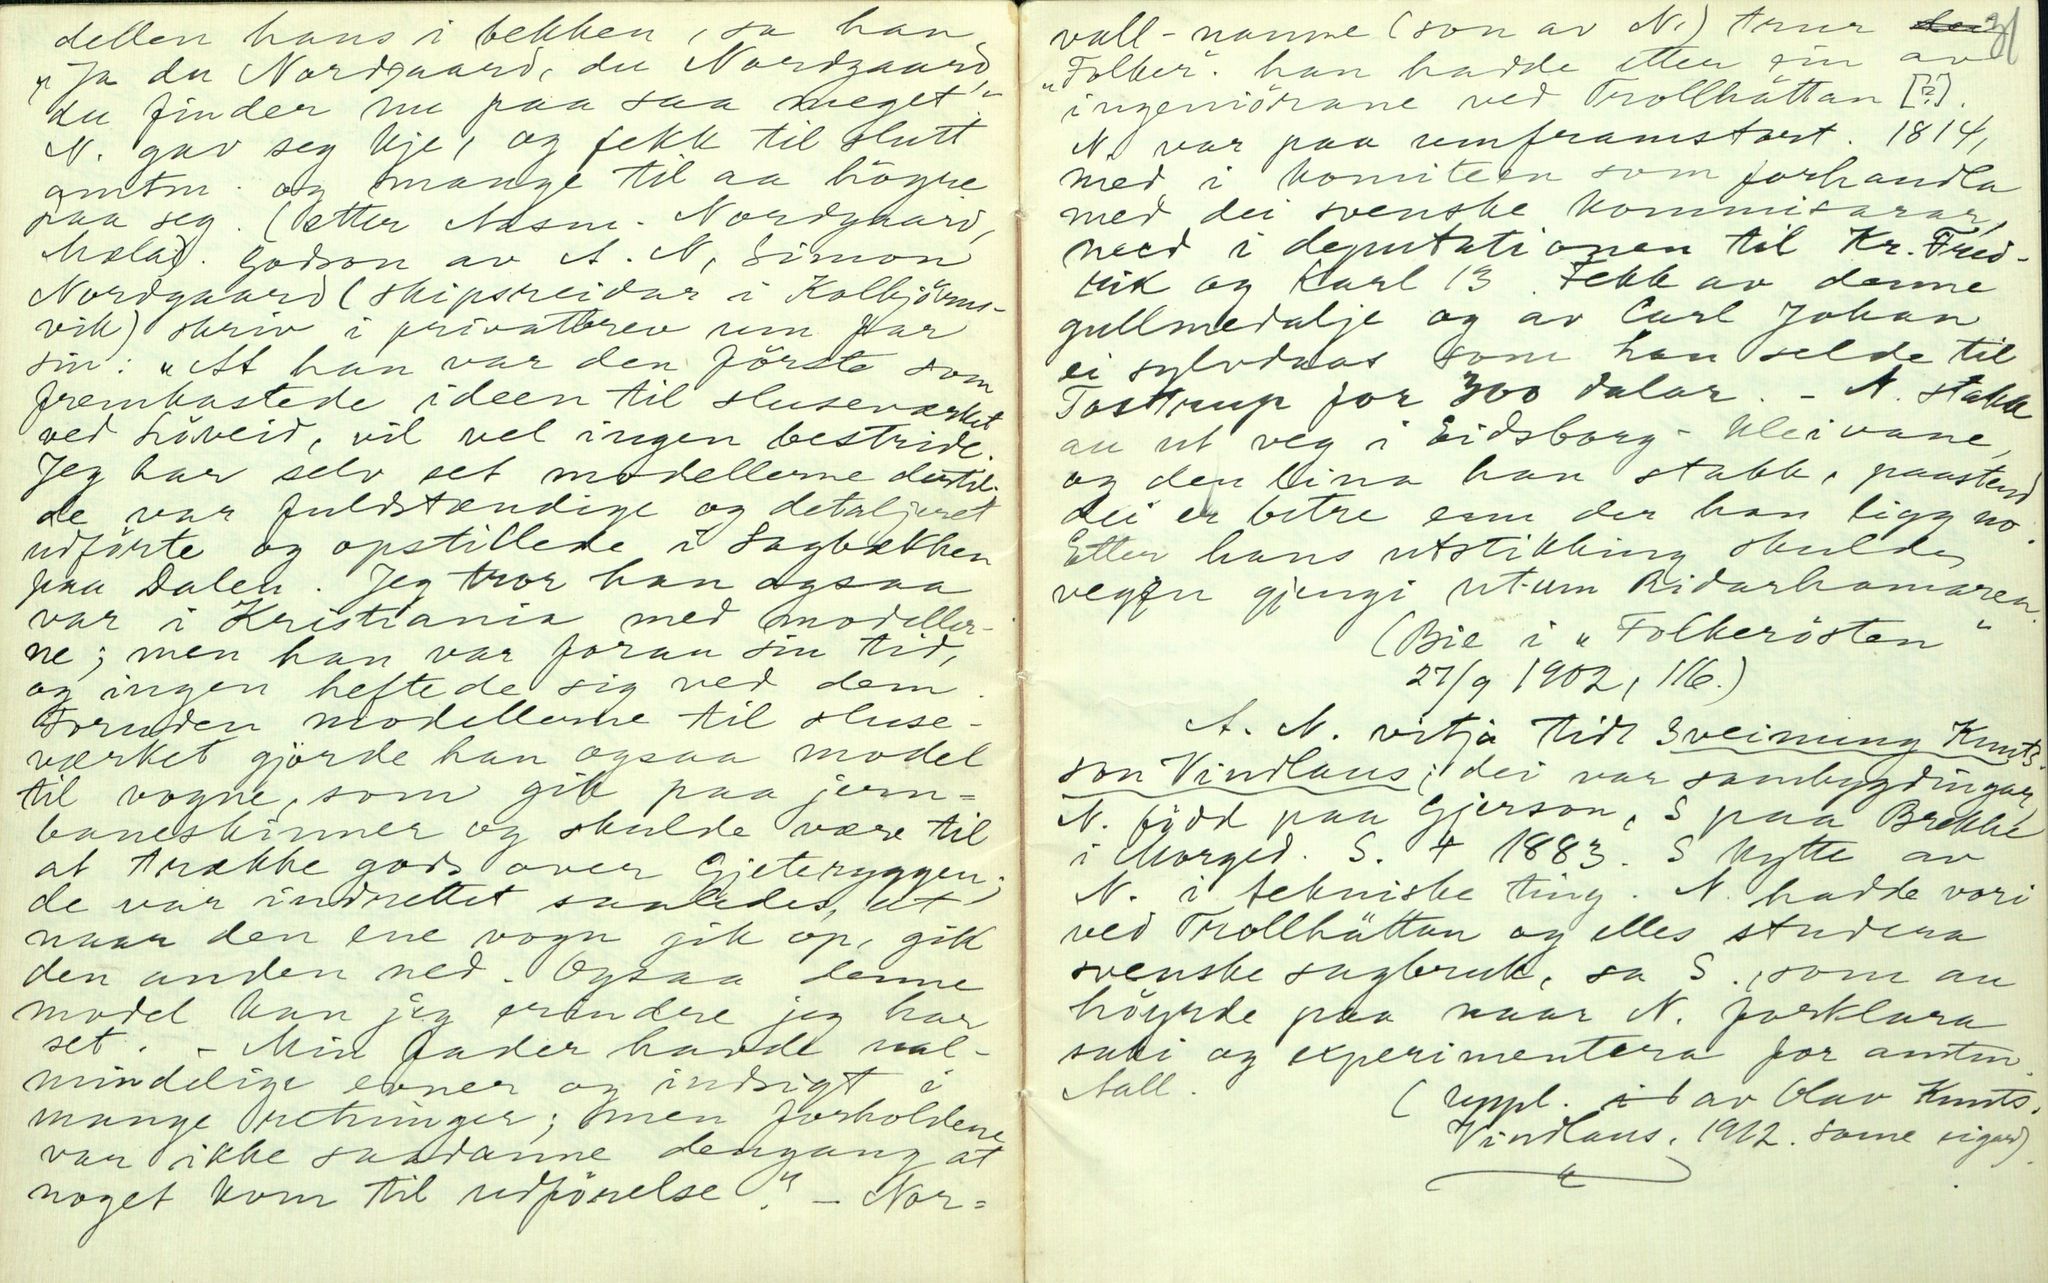 dellen hans i bekken, sa han
„Ja du Nordgaard, du Nordgaard
du finder nu paa saa meget“.
N. gav seg kje, og fekk til slutt
amtm. og mange til aa högre
paa seg. (etter Aasm. Nordgaard,
Mælad. Godson av A. N, Simon
Nordgaard (skipsreidar i Kolbjörns-
vik) skriv i privatbrev um far
sin: „At han var den förste som
fremkastede ideen til sluseværket
ved Löveid, vil vel ingen bestride.
Jeg har selv set modellerne dertil.
de var fuldstændige og detaljeret
udförte og opstillede i Sagbækken
paa Dalen. Jeg tror han ogsaa
var i Kristiania med modeller-
ne; men han var foran sin tid,
og ingen heftede sig ved dem.
Foruden modellerne til sluse-
værket gjorde han ogsaa model
til vogne, som gik paa jern=
baneskinner og skulde være til
at trække gods over Gjeteryggen;
de var indrettet saaledes, at
naar den ene vogn gik op, gik
den anden ned. Ogsaa denne
model kan jeg erindre jeg har
set. - Min fader havde ual-
mindelige evner og indsigt i
mange retninger; men forholdene
var ikke saadanne dengang at
noget kom til udförelse.“ - Nor=
31
vall-namne (son av N.) trur
„Folker“. han hadde etter ein av
ingeniörane ved Trollhättan [?].
N. var paa umframstort. 1814,
med i komiteen som forhandla
med dei svenske kommisarar,
med i deputationen til Kr. Fred-
rik og Karl 13. Fekk av denne
gullmedalje og av Carl Johan
ei sylvdaas som han selde til
Tostrup for 300 dalar. - N. stakk
au ut veg i Eidsborg-kleivane,
og den lina han stakk, paastend
dei er betre enn der han ligg no.
Etter hans utstikking skulde
vegen gjengi ut-um Ridarhamaren.
(Bie i „Folkerösten“
27/9 1902, 116.)
A. N. vitja tidt Sveinung Knuts-
son Vindlaus; dei var sambygdingar,
N. född paa Gjerson, S paa Brekke
i Morged. S. † 1883. S nytte av
N. i tekniske ting. N. hadde vori
ved Trollhättan og elles studera
svenske sagbruk, sa S., som au
höyrde paa naar N. forklara
saki og experimentera for amtm.
Aall.
(uppl. av Olav Knuts.
Vindlaus, 1912. same sigard).